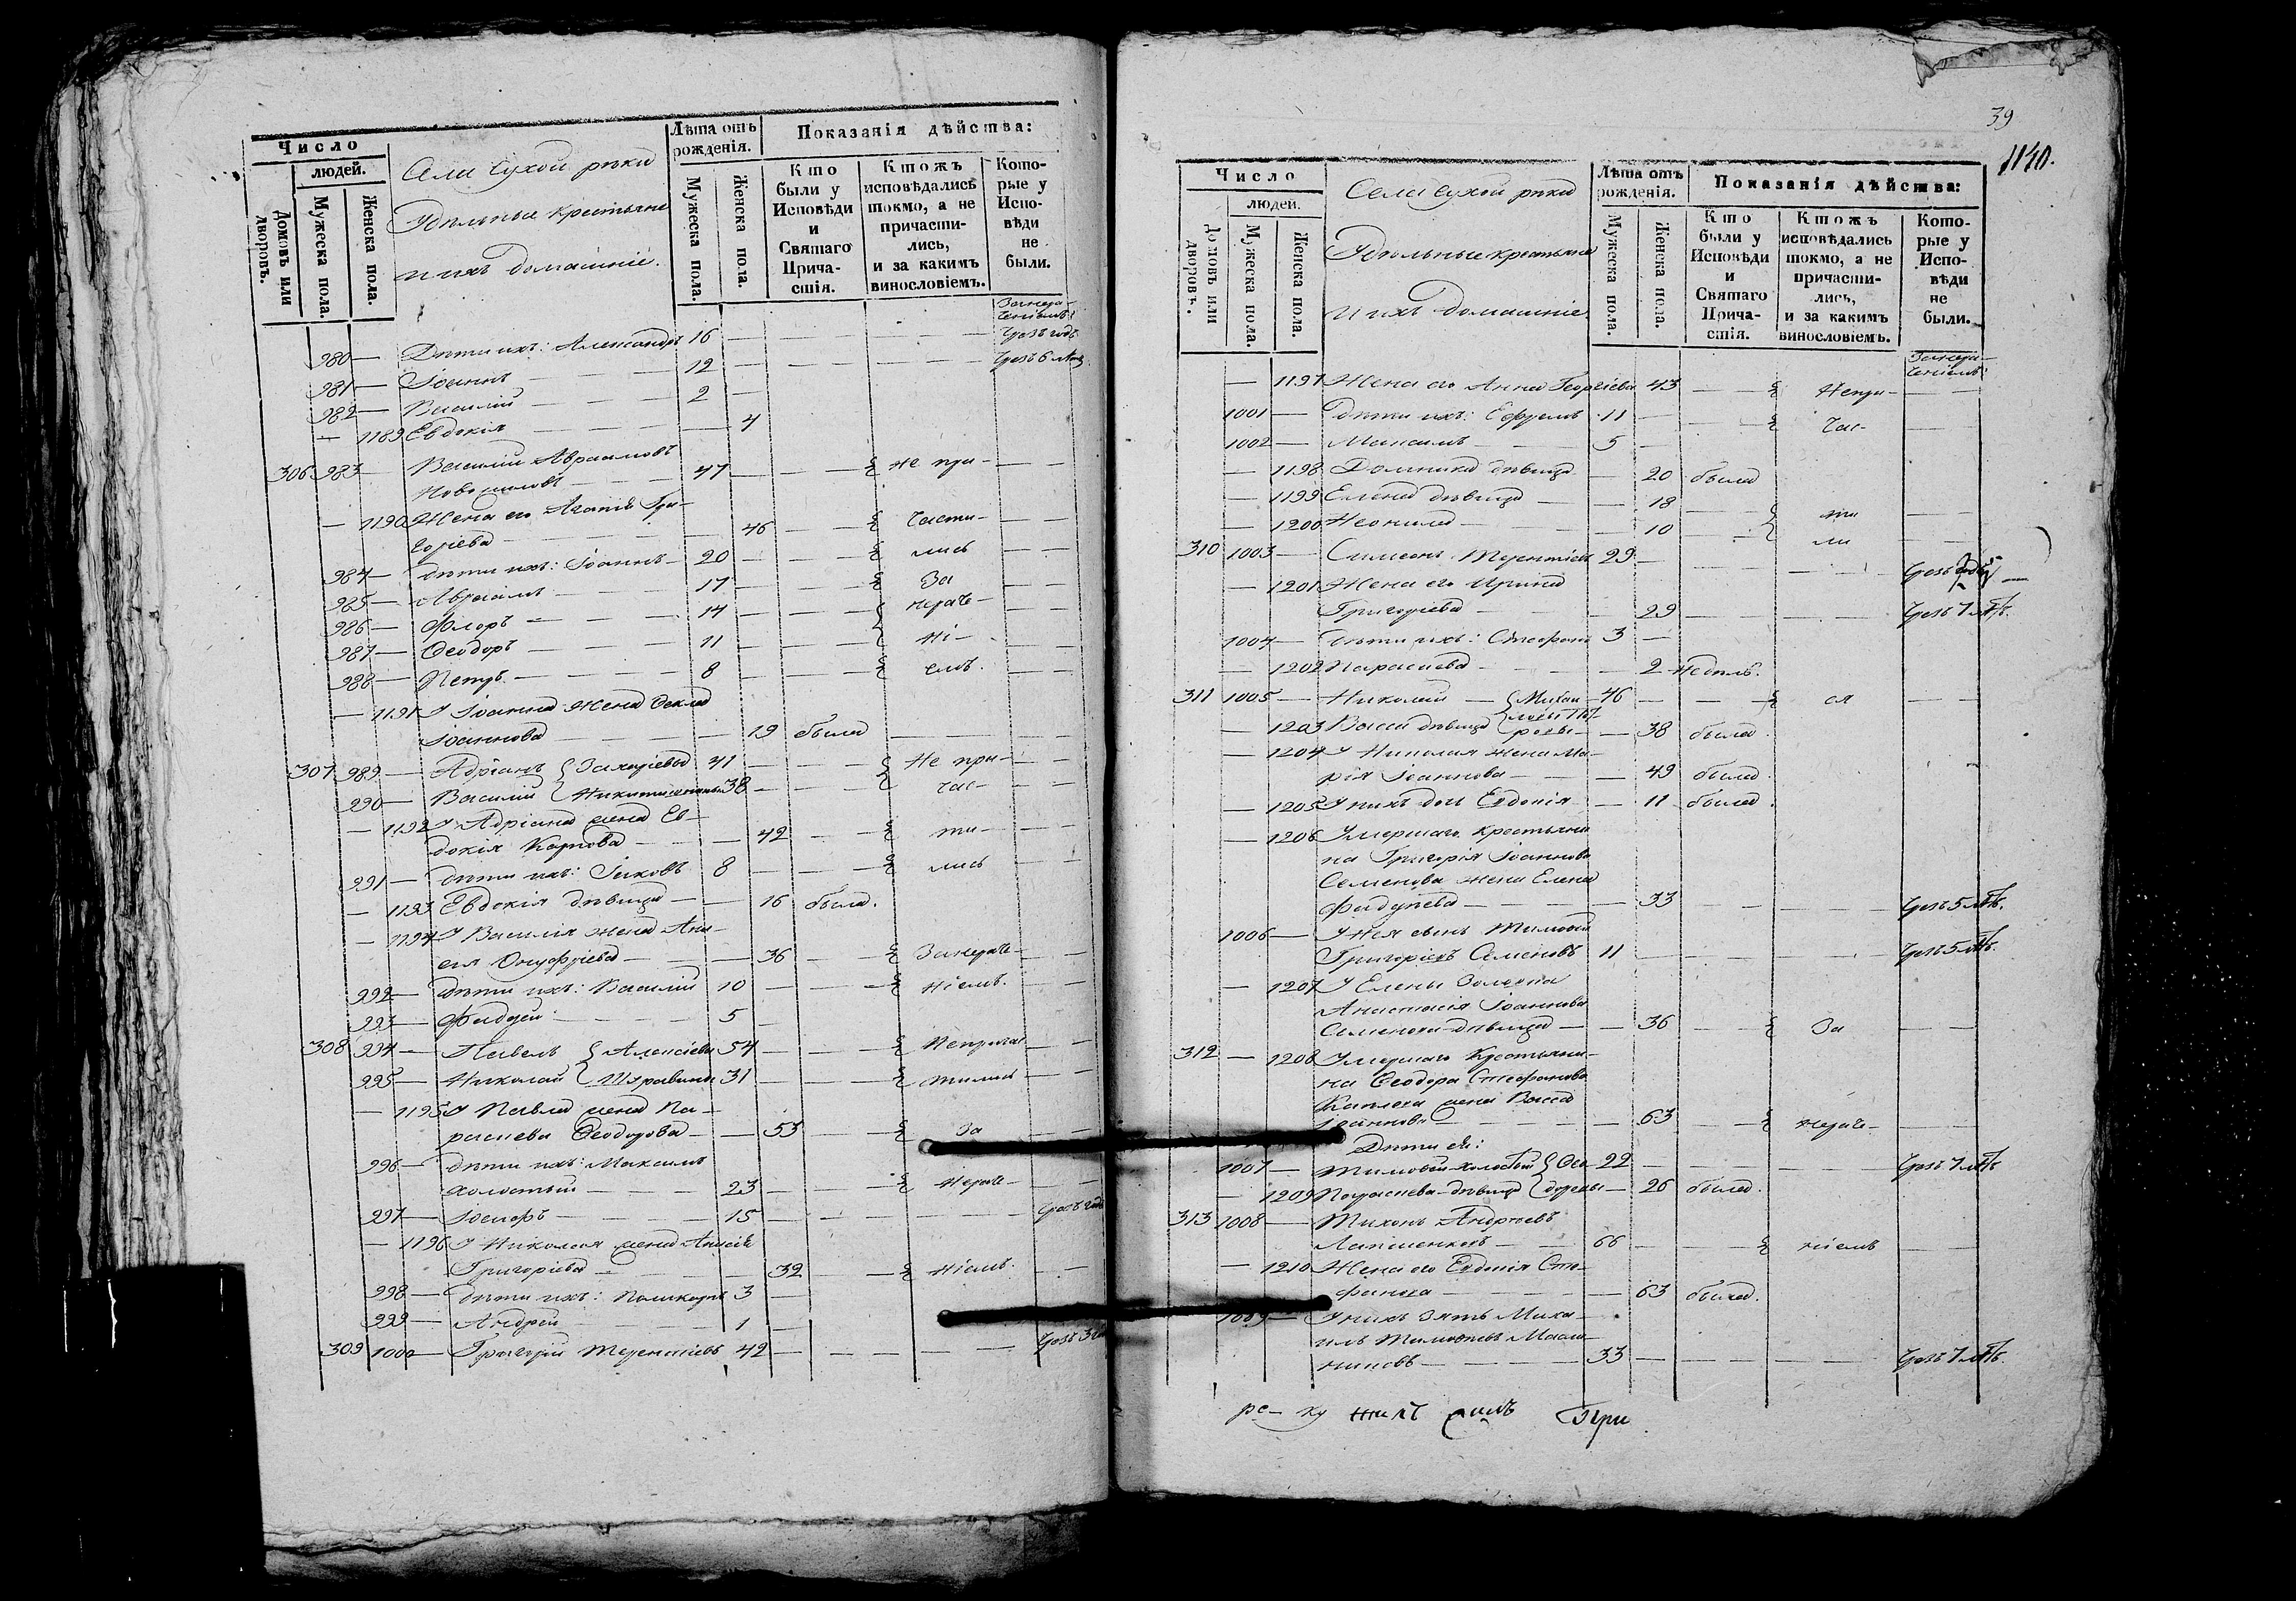 Число
людей.
Домовъ или дворовъ.
Мужеска пола.
Женска пола.
Села Сухой рѣки
Удѣльные крестьяне
и ихъ домашніе.
Лѣта отъ рожденія.
Мужеска пола.
Женска пола.
Показанія дѣйства:
Кто были у Исповѣди и Святаго Прича-стія.
Ктожъ исповѣдались токмо, а не причасти-лись, и за какимъ винословіемъ.
Кото-рые у Испо-вѣди не были.
Занера-
ченіемъ:
980 — Дѣти ихъ: Александръ 16 — — — — Чрезъ годъ
981 — Іоаннъ — — 12 — — — — Чрезъ 6 лѣтъ
982 — Василій — — 2 —
— 1189 Евдокія — — — 4
306 983 — Василій Авраамовъ
— — 47 — — не при- — —
— 1190 Жена его Агапія Гри-
горіева — — 46 — — части- — —
984 — дѣти ихъ: Іоаннъ — 20 — — лись — —
985 — Авраамъ — — 17 — — За — —
986 — Флоръ — — 14 — — нераче- — —
987 — Ѳеодоръ — — 11 — — ні- —
988 — Петръ — — 8 — — емъ. — —
— 1191 У Іоанна жена Ѳекла
Іоаннова — — 19 была — — —
307 989 — Адріанъ { Захаріевы 41 — — Не при- — —
990 — Василій { 38 — — час- — —
— 1192 У Адріана жена Ев-
докія Карпова — — 42 — — ти- — —
991 — дѣти ихъ: Іаковъ 8 — — лись — —
— 1193 Евдокія дѣвица — — 16 была.
— 1194 У Василія жена Ани-
сія Онуфріева — — 36 — — Занераче- — —
992 — дѣти ихъ: Василій 10 — — ніемъ. — —
993 — Фаддей — — 5 —
308 994 — Павелъ { Алексіевы 54 — — Непричас — —
995 — Николай { 31 — — тились — —
— 1195 У Павла жена Па-
раскева Ѳеодорова — — 53 — — За — —
996 — дѣти ихъ: Максимъ
холостый — — 23 — — Нераче- — —
997 — Іосифъ — — 15 — — — — Чрезъ годъ
— 1196 У Николая жена Анисія
Григоріева — — 32 — — ніемъ. — —
998 — дѣти ихъ: Поликарпъ 3 —
999 — Андрей — — 1 —
309 1000 — Григорій Терентіевъ 42 — — — — Чрезъ 3
39
1140.
Число
людей.
Домовъ или дворовъ.
Мужеска пола.
Женска пола.
Села Сухой рѣки
Удѣльные крестьяне
и ихъ домашніе
Лѣта отъ рожденія.
Мужеска пола.
Женска пола.
Показанія дѣйства:
Кто были у Исповѣди и Святаго Прича-стія.
Ктожъ исповѣдались токмо, а не причасти-лись, и за какимъ винословіемъ.
Кото-рые у Испо-вѣди не были.
Занера-
ченіемъ:
— 1197 Жена его Анна Георгіева 43 — — Непри- — —
1001 — дѣти ихъ: Ефремъ 11 — — Час- — —
1002 — Максимъ — 5 —
— 1198 Домника дѣвица — 20 была
— 1199 Елена дѣвица — — 18 — — ти — —
— 1200 Неонила — — 10 — — ли — —
310 1003 — Симеонъ Терентіевъ 29 — — — Чрезъ
— 1201 Жена его Ирина
Григоріева — — 29 — — Чрезъ 7 лѣтъ.
1004 — дѣти ихъ: Стефанъ 3 —
— 1202 Параскева — — 2 Недолѣ.
311 1005 — Николай — { Михаи- 46 — — ся — —
— 1203 Васса дѣвица { ловы — 38 была.
— 1204 У Николая жена Ма-
рія Іоаннова — — 49 была.
— 1205 У нихъ дочь Евдокія — — 11 была.
— 1206 Умершаго крестьяни
на Григорія Іоаннова
Семенова жена Елена
Фаддеева — — 33 — — — Чрезъ 5 лѣтъ.
1006 — У нея сынъ Тимоѳей
Григоріевъ Семеновъ 11 — — — Чрезъ 5 лѣтъ.
— 1207 У Елены Золовка
Анастасія Іоаннова
Семенова дѣвица — — 36 — — За — —
312 — 1208 Умершаго Крестьяни-
на Ѳеодора Стефанова
жена Васса
Іоаннова — — 63 — — нераче- — —
Дѣти ея:
1007 — Тимоѳей холостый { Ѳео- 22 — — — Чрезъ 7 лѣтъ
— 1209 Параскева дѣвица { доровы — 26 была.
313 1008 — Тихонъ Андреевъ
— 66 — — ніемъ — —
— 1210 Жена его Евдокія Сте-
фанова — — 63 была.
1009 — У нихъ зять Миха-
илъ Тимоѳеевъ
— 33 — — — — Чрезъ 7 лѣтъ.
ре- ку При